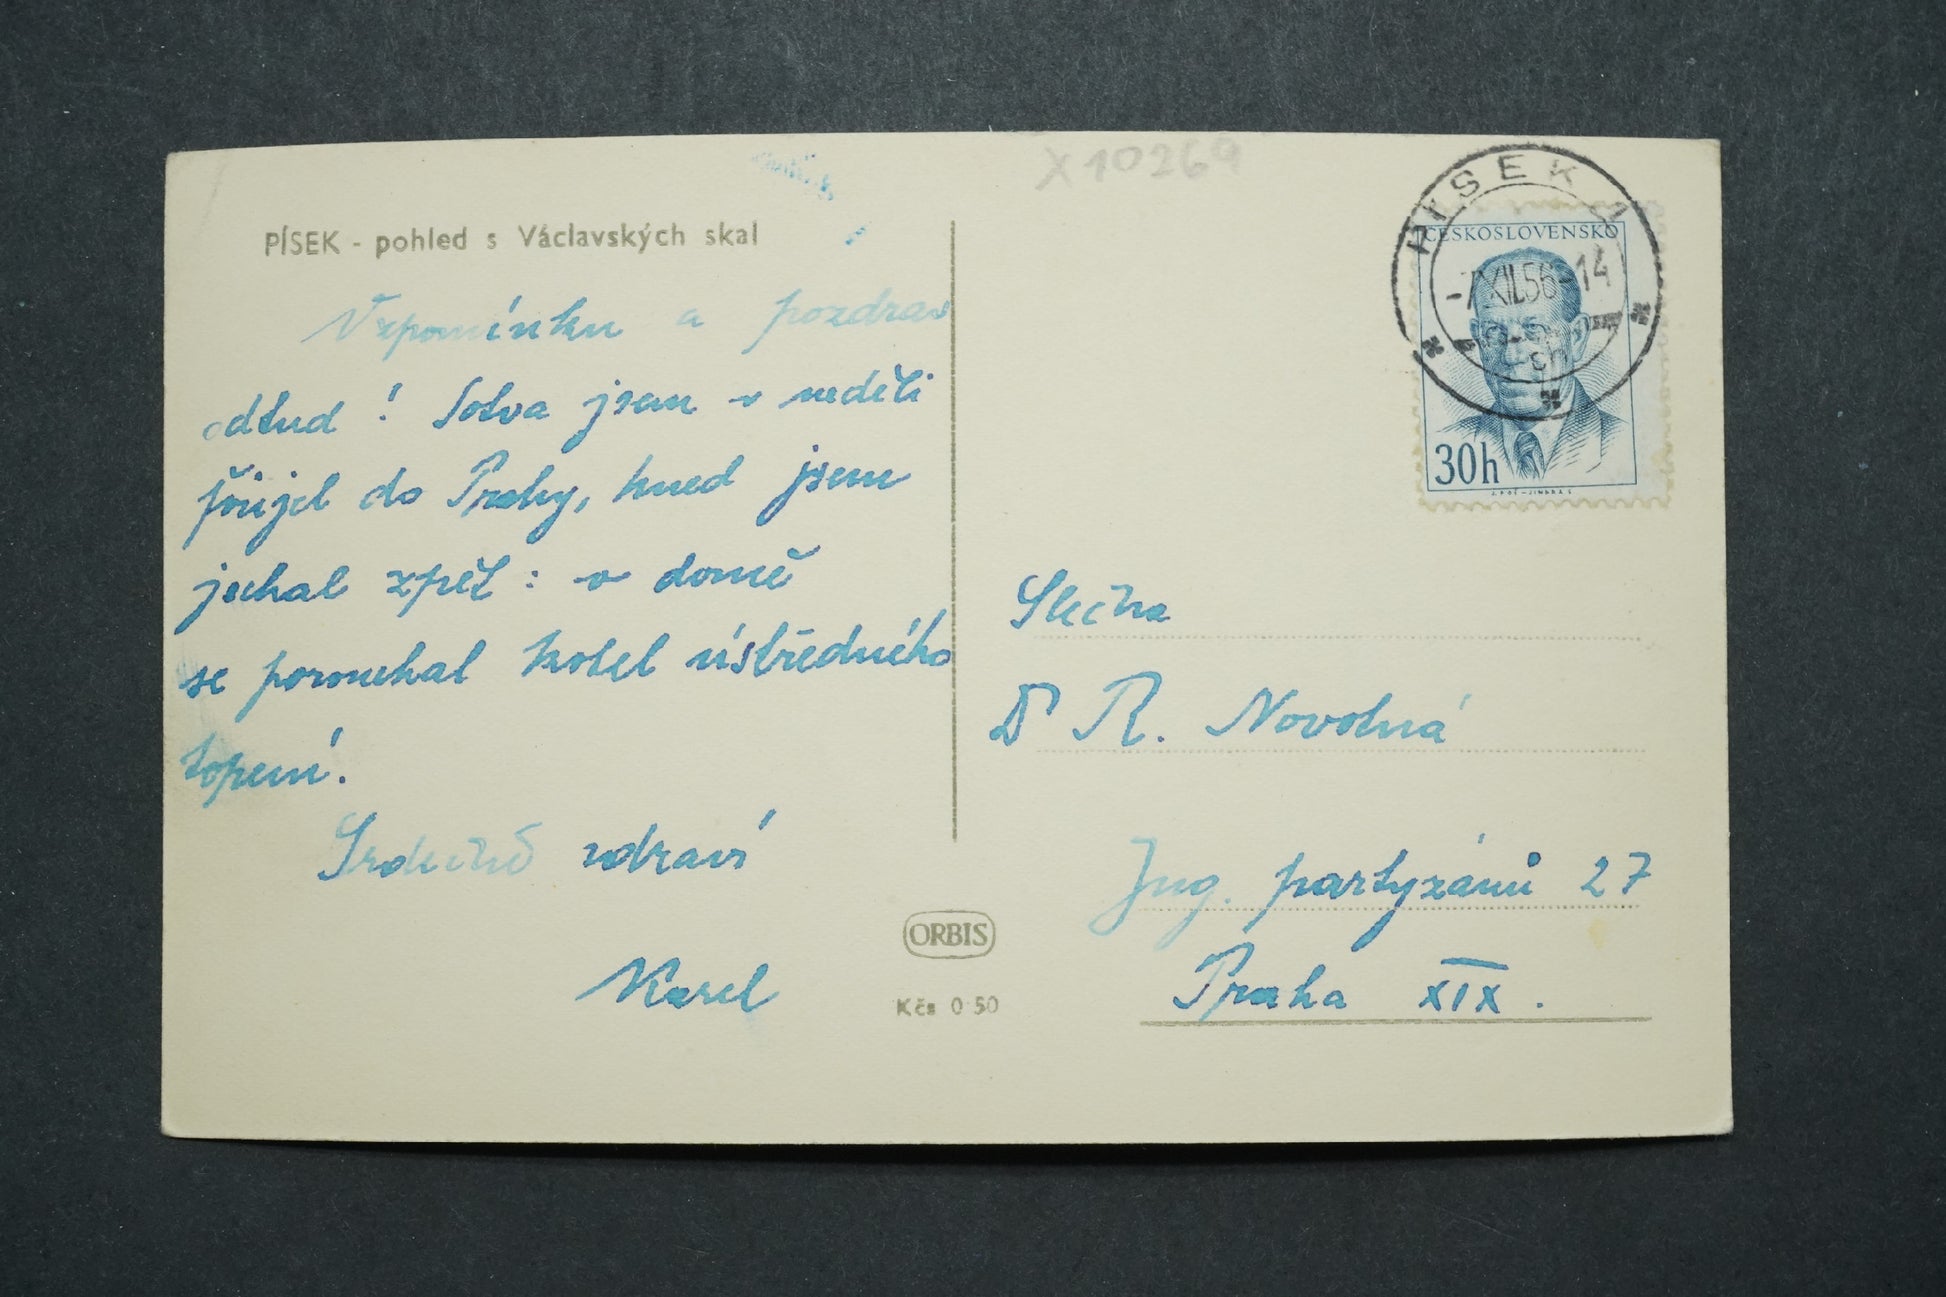 X10269
PÍSEK - pohled s Václavských skal
Vzpomínku a pozdrav
odtud! Sotva jsem v neděli
přijel do Prahy, hned jsem
jechal zpět: v domě
se porouchal kotel ústředného
topení.
Srdečně zdraví
Karel
ORBIS
Kčs 0·50
PÍSEK 1
-7.XII.56-14
ČESKOSLOVENSKO
30h
Slečna
Dr R. Novotná
Jug. partyzánů 27
Praha XIX.